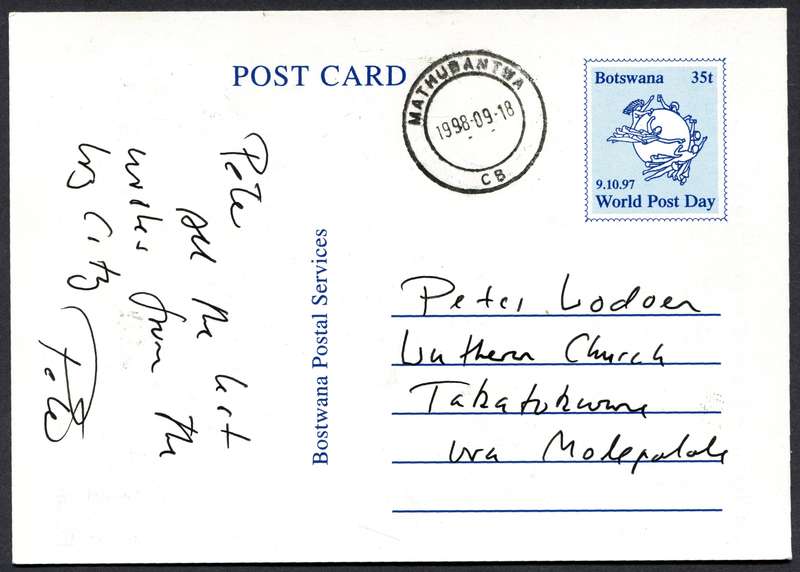 POST CARD
MATHUBANTWA
1998-09-18
CB
Botswana 35t
9.10.97
World Post Day
Bostwana Postal Services
Pete
All the best
wishes from the
big City
Pete
Peter
Lutheran Church
Takatokwane
via Molepolole